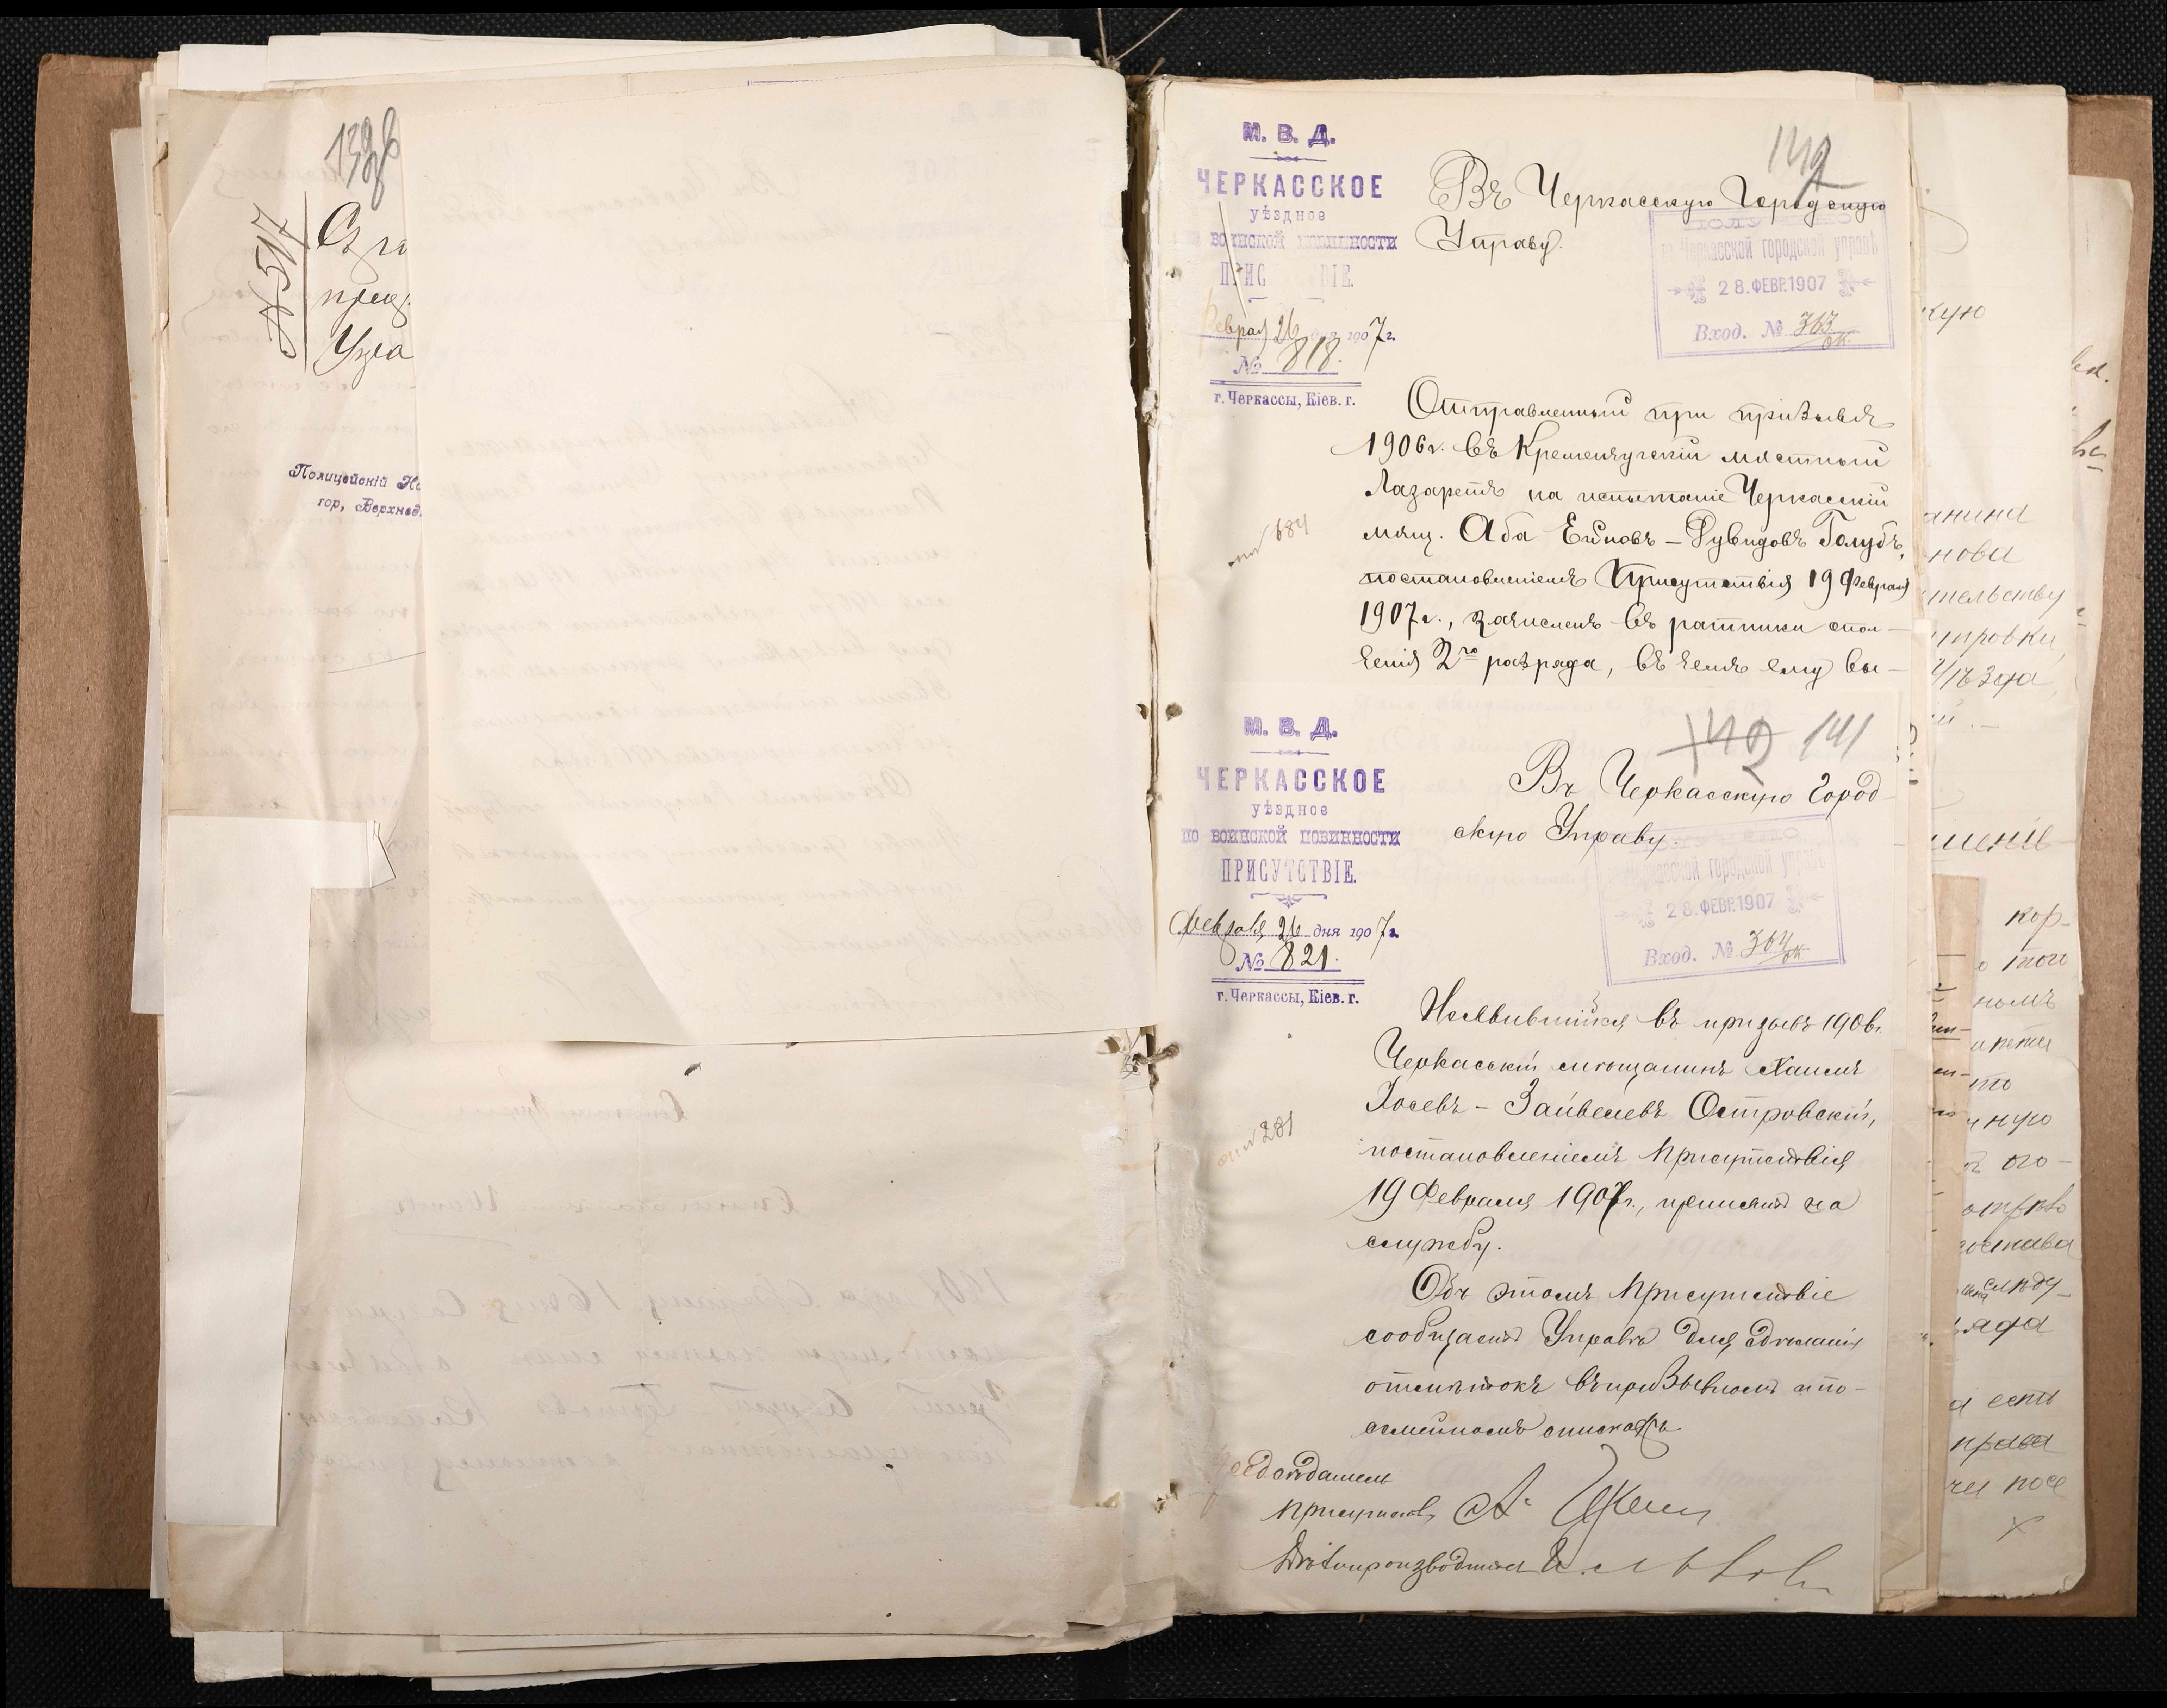 1398
№ 597
Полицейскій
гор, Верхнед
М. В. Д.
ЧЕРКАССКОЕ
уѣздное
воинской повинности
ПРИС ВІЕ.
Феврал 26 дня 1907 г.
№ 818.
г. Черкассы, Кіев. г.
142
Въ Черкасскую Городскую
Управу.
ПОЛУЧЕНО
въ Черкасской городской управѣ
28.ФЕВР.1907
Вход. № 363
Отправленный при призывѣ
1906 г. въ Кременчугскій мѣстный
Лазаретъ на испытаніе Черкасскій
мѣщ. Аба Ейновъ-Дувидовъ Голубъ,
постановленіемъ Присутствія 19 Февраля
1907 г., зачисленъ въ ратники опол-
ченія 2го разряда, въ чемъ ему вы-
684
М. В. Д.
ЧЕРКАССКОЕ
уѣздное
по воинской повинности
ПРИСУТСТВІЕ.
Февраля 26 дня 1907 г.
№ 821.
г. Черкассы, Кіев. г.
142 141
Въ Черкасскую Город-
скую Управу.
Черкасской городской управѣ
28.ФЕВР.1907
Вход. № 364
Неявившійся въ призывъ 1906 г.
Черкасскій мѣщанинъ Хаимъ
Іосевъ-Зайвелевъ Островскій,
постановленіемъ Присутствія
19 Февраля 1907 г., принятъ на
службу.
281
Объ этомъ Присутствіе
сообщаетъ Управѣ для сдѣланія
отмѣтокъ въ призывномъ и по-
семейномъ спискахъ.
Предсѣдатель
Присутств. А.
Дѣлопроизводитель
кую
анина
нова
тельству
тировки,
Уѣзда,
кор-
того
номъ
ную
ого-
состава
слѣду-
есть
права